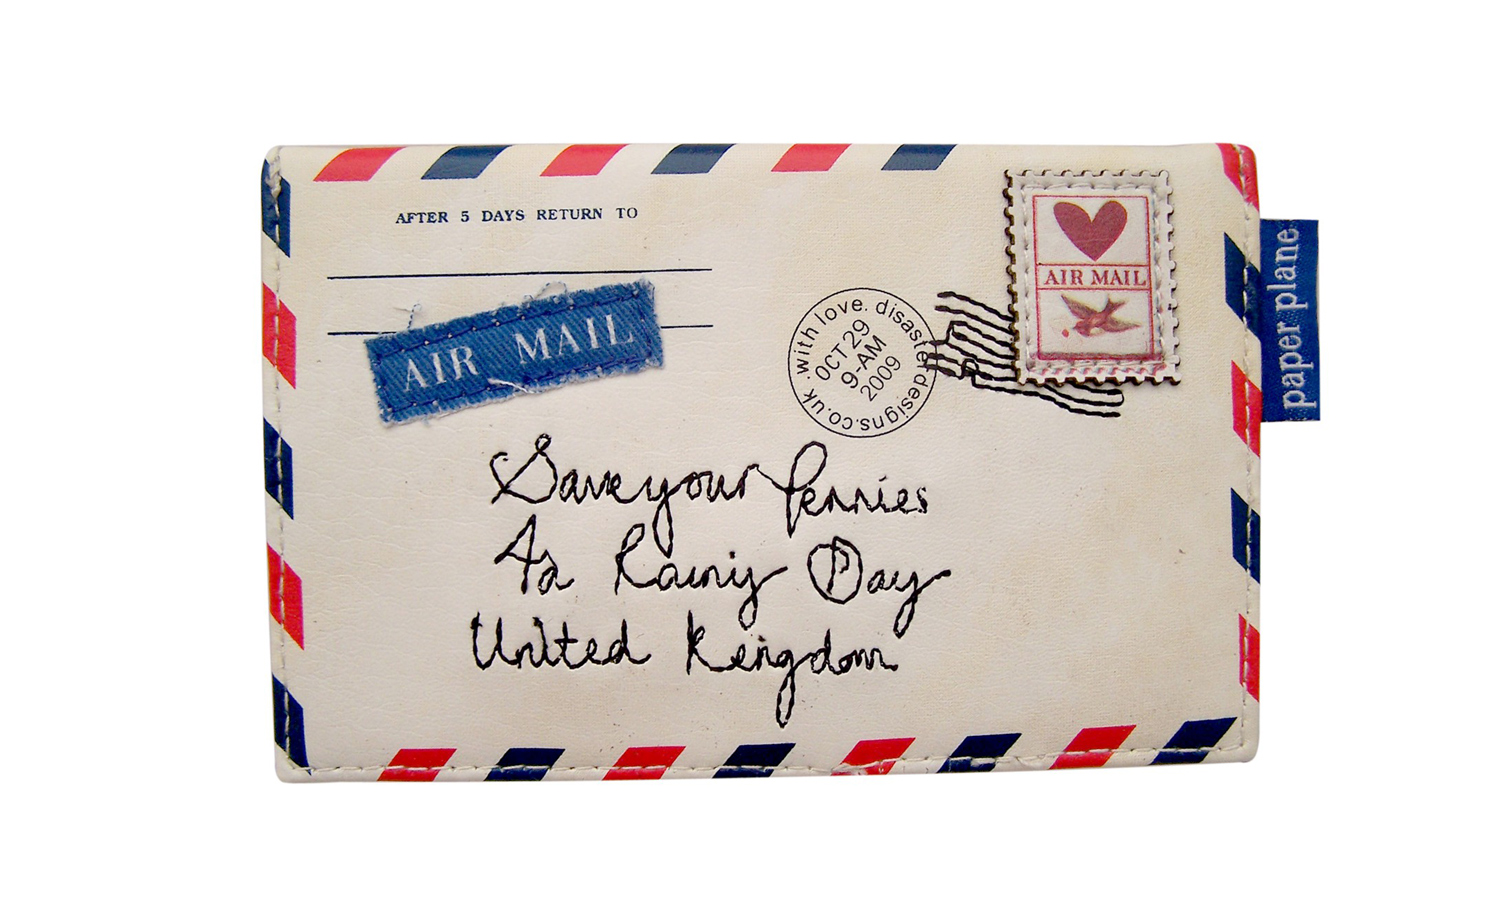 AFTER 5 DAYS RETURN TO
AIR MAIL
AIR MAIL
.with love. disasterdesigns.co.uk
OCT 29
9-AM
2009
paper plane
Save your Pennies
4a Rainy Day
United Kingdom